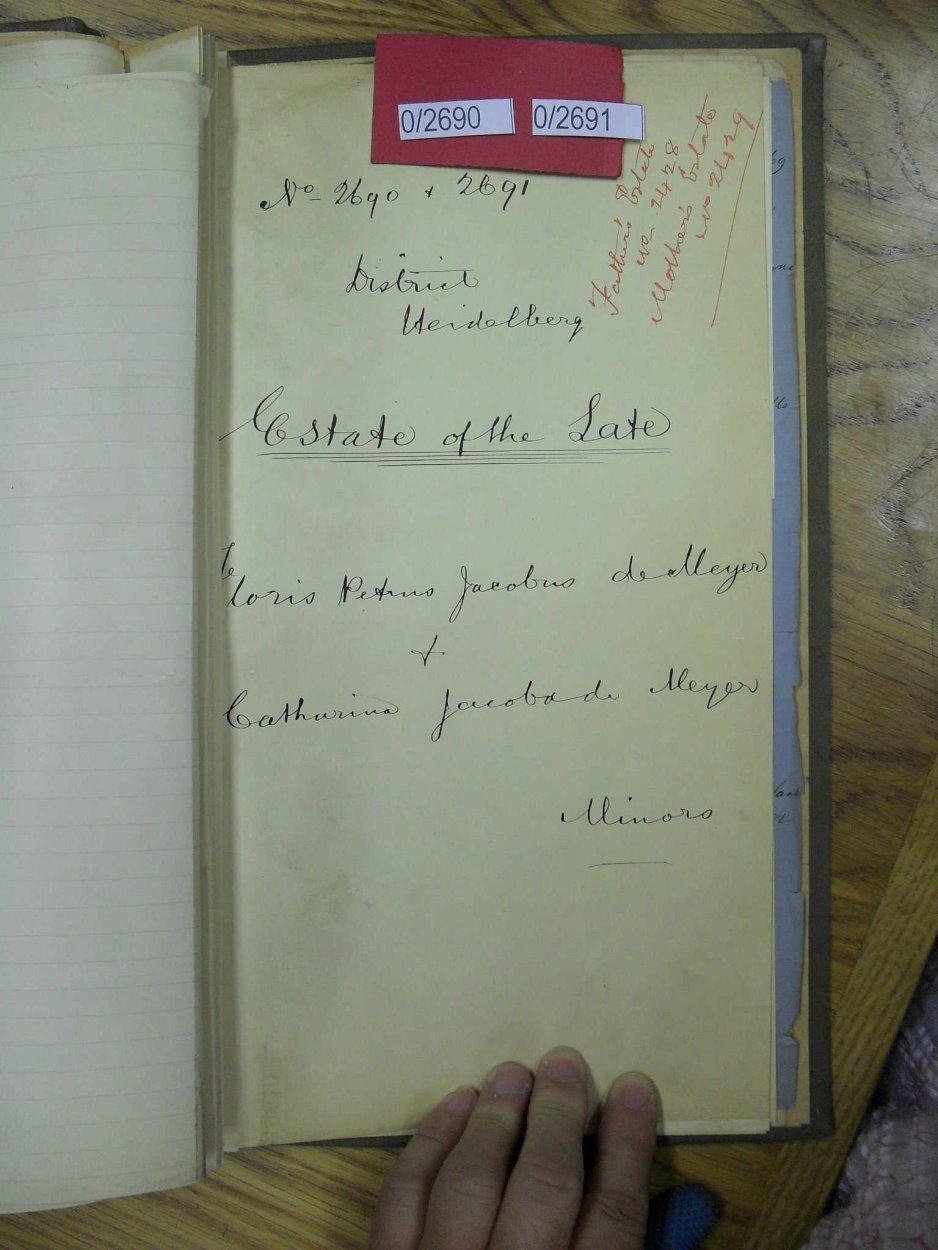 0/2690 0/2691
Father's Estate
No 2428
Mother's Estate
No 2429
No 2690 + 2691
District
Heidelberg
Estate of the Late
Floris Petrus Jacobus de Meyer
+
Catharina Jacoba de Meyer
Minors